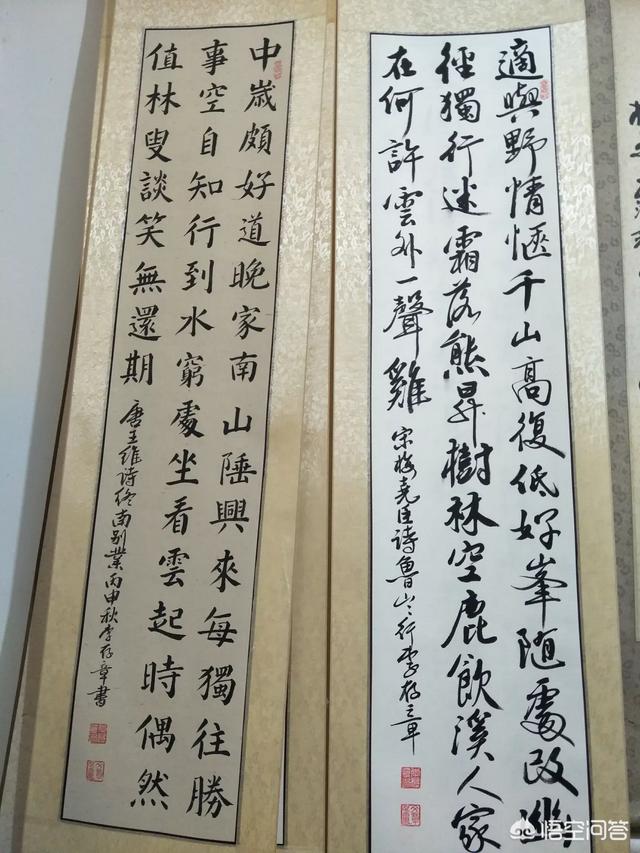 適與野情愜千山高復低好峯隨處改幽
徑獨行迷霜落熊昇樹林空鹿飲溪人家
在何許雲外一聲雞
宋梅堯臣诗魯山〻行李存章
中歲頗好道晚家南山陲興來每獨往勝
事空自知行到水窮處坐看雲起時偶然
值林叟談笑無還期
唐王維诗終南别業丙申秋李存章書
悟空问答